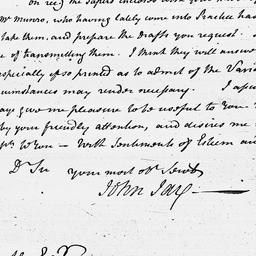 on rec.g the papers enclosed with your
Mr Munro, who having lately come into Practice has
take them, and prepare the Drafts you request.
of transmitting them. I think they will answer
especially if so printed as to admit of the Varia
cumstances may render necessary. I
ays give me pleasure to be useful to you.
by your friendly attention, and desires me
to you — With Sentiments of Esteem an
Dr Sir your most obt Servt
John Jay